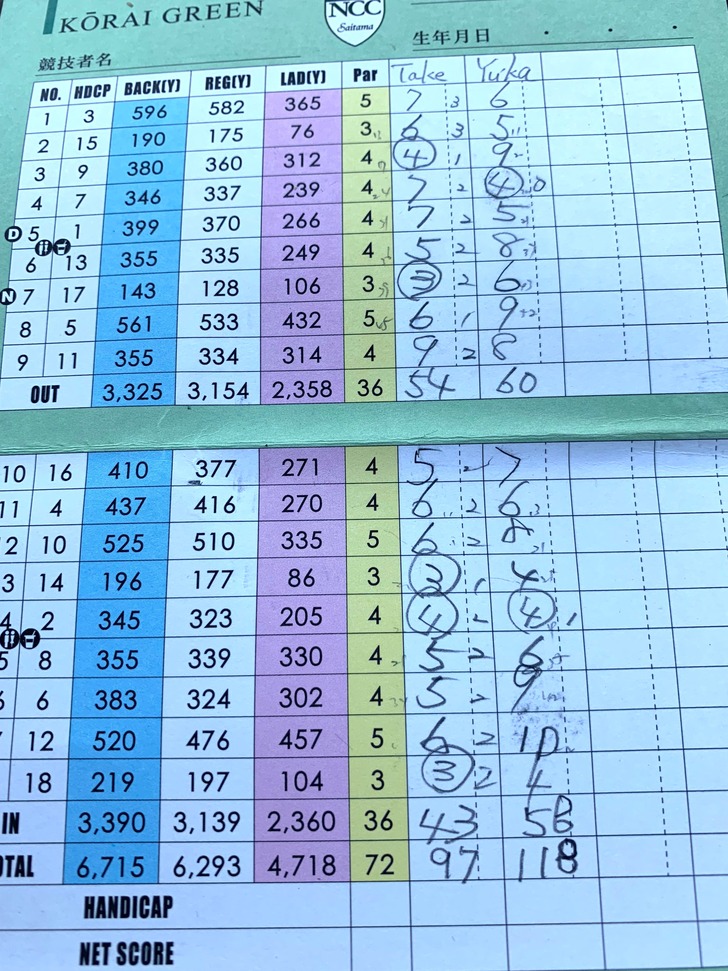 KŌRAI GREEN
NCC
Saitama
生年月日 ・ ・ ・
競技者名
NO. HDCP BACK(Y) REG(Y) LAD(Y) Par Take Yuka
1 3 596 582 365 5 7 3 6
2 15 190 175 76 3 6 3 5
3 9 380 360 312 4 4 1 9
4 7 346 337 239 4 7 2 4 0
D 5 1 399 370 266 4 7 2 5
6 13 355 335 249 4 5 2 8
N 7 17 143 128 106 3 3 2 6
8 5 561 533 432 5 6 1 9
9 11 355 334 314 4 9 2 8
OUT 3,325 3,154 2,358 36 54 60
10 16 410 377 271 4 5 7
11 4 437 416 270 4 6 2 6
2 10 525 510 335 5 6 2 8
3 14 196 177 86 3 3 1 4
4 2 345 323 205 4 4 4 1
5 8 355 339 330 4 5 2 6
6 6 383 324 302 4 5 9
12 520 476 457 5 6 2 10
18 219 197 104 3 3 2 4
IN 3,390 3,139 2,360 36 43 58
OTAL 6,715 6,293 4,718 72 97 118
HANDICAP
NET SCORE